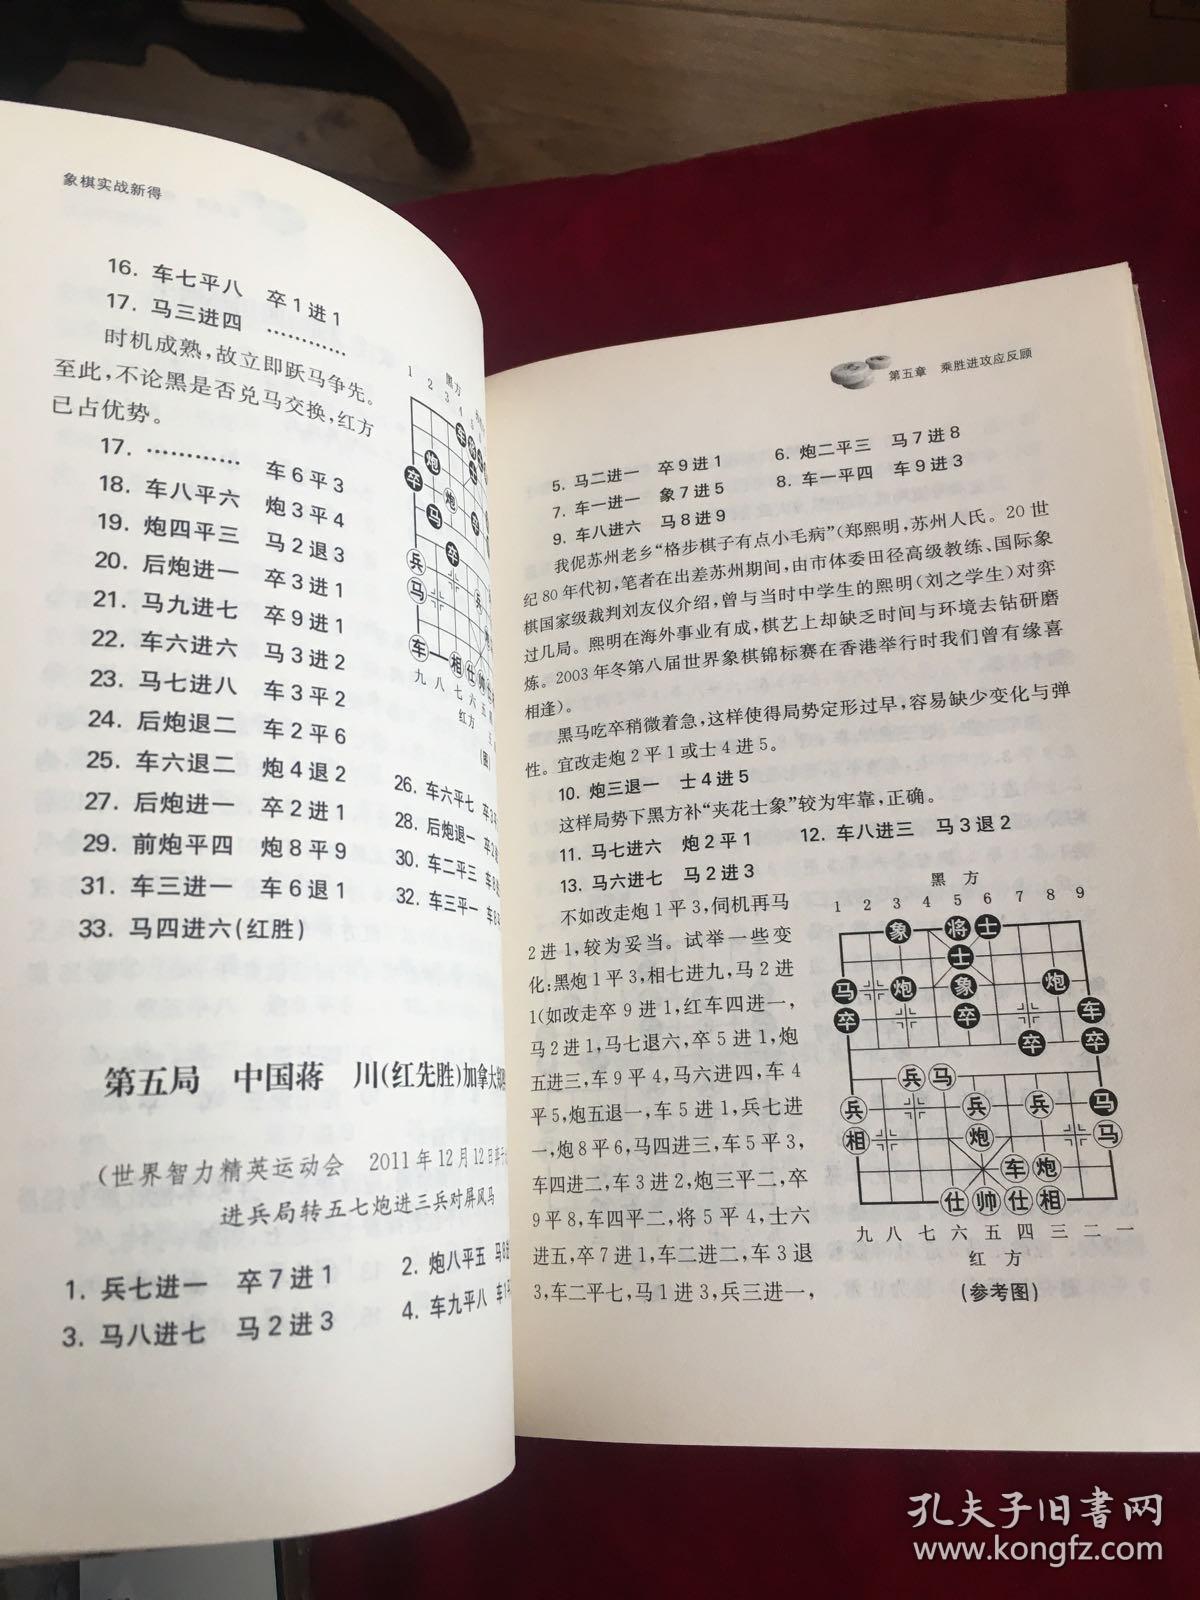 象棋实战新得
16. 车七平八 卒1进1
17. 马三进四 …………
时机成熟,故立即跃马争先。
至此,不论黑是否兑马交换,红方
已占优势。
17. ………… 车6平3
18. 车八平六 炮3平4
19. 炮四平三 马2退3
20. 后炮进一 卒3进1
21. 马九进七 卒9进1
22. 车六进六 马3进2
23. 马七进八 车3平2
24. 后炮退二 车2平6
25. 车六退二 炮4退2
26. 车六平七
27. 后炮进一 卒2进1
28. 后炮退一
29. 前炮平四 炮8平9
30. 车二平三
31. 车三进一 车6退1
32. 车三平一
33. 马四进六(红胜)
黑方
1 2 3 4 5
车
炮
士
卒
炮
马
卒
兵
兵
马
车 相 仕 帅
九 八 七 六 五
红方
第五局 中国蒋 川(红先胜)加拿大
(世界智力精英运动会 2011年12月12日
进兵局转五七炮进三兵对屏风马
1. 兵七进一 卒7进1
2. 炮八平五
3. 马八进七 马2进3
4. 车九平八
第五章 乘胜进攻应反顾
5. 马二进一 卒9进1
6. 炮二平三 马7进8
7. 车一进一 象7进5
8. 车一平四 车9进3
9. 车八进六 马8进9
我伲苏州老乡“格步棋子有点小毛病”(郑熙明,苏州人氏。20世
纪80年代初,笔者在出差苏州期间,由市体委田径高级教练、国际象
棋国家级裁判刘友仪介绍,曾与当时中学生的熙明(刘之学生)对弈
过几局。熙明在海外事业有成,棋艺上却缺乏时间与环境去钻研磨
炼。2003年冬第八届世界象棋锦标赛在香港举行时我们曾有缘喜
相逢)。
黑马吃卒稍微着急,这样使得局势定形过早,容易缺少变化与弹
性。宜改走炮2平1或士4进5。
10. 炮三退一 士4进5
这样局势下黑方补“夹花士象”较为牢靠,正确。
11. 马七进六 炮2平1
12. 车八进三 马3退2
13. 马六进七 马2进3
不如改走炮1平3,伺机再马
2进1,较为妥当。试举一些变
化:黑炮1平3,相七进九,马2进
1(如改走卒9进1,红车四进一,
马2进1,马七退六,卒5进1,炮
五进三,车9平4,马六进四,车4
平5,炮五退一,车5进1,兵七进
一,炮8平6,马四进三,车5平3,
车四进二,车3进2,炮三平二,卒
9平8,车四平二,将5平4,士六
进五,卒7进1,车二进二,车3退
3,车二平七,马1进3,兵三进一,
黑 方
1 2 3 4 5 6 7 8 9
象 将 士
士
马 炮 象 炮
卒 卒 车
卒 卒
兵 马
兵 兵 兵 马
相 炮 马
车 炮
仕 帅 仕 相
九 八 七 六 五 四 三 二 一
红 方
(参考图)
孔夫子旧书网
www.kongfz.com